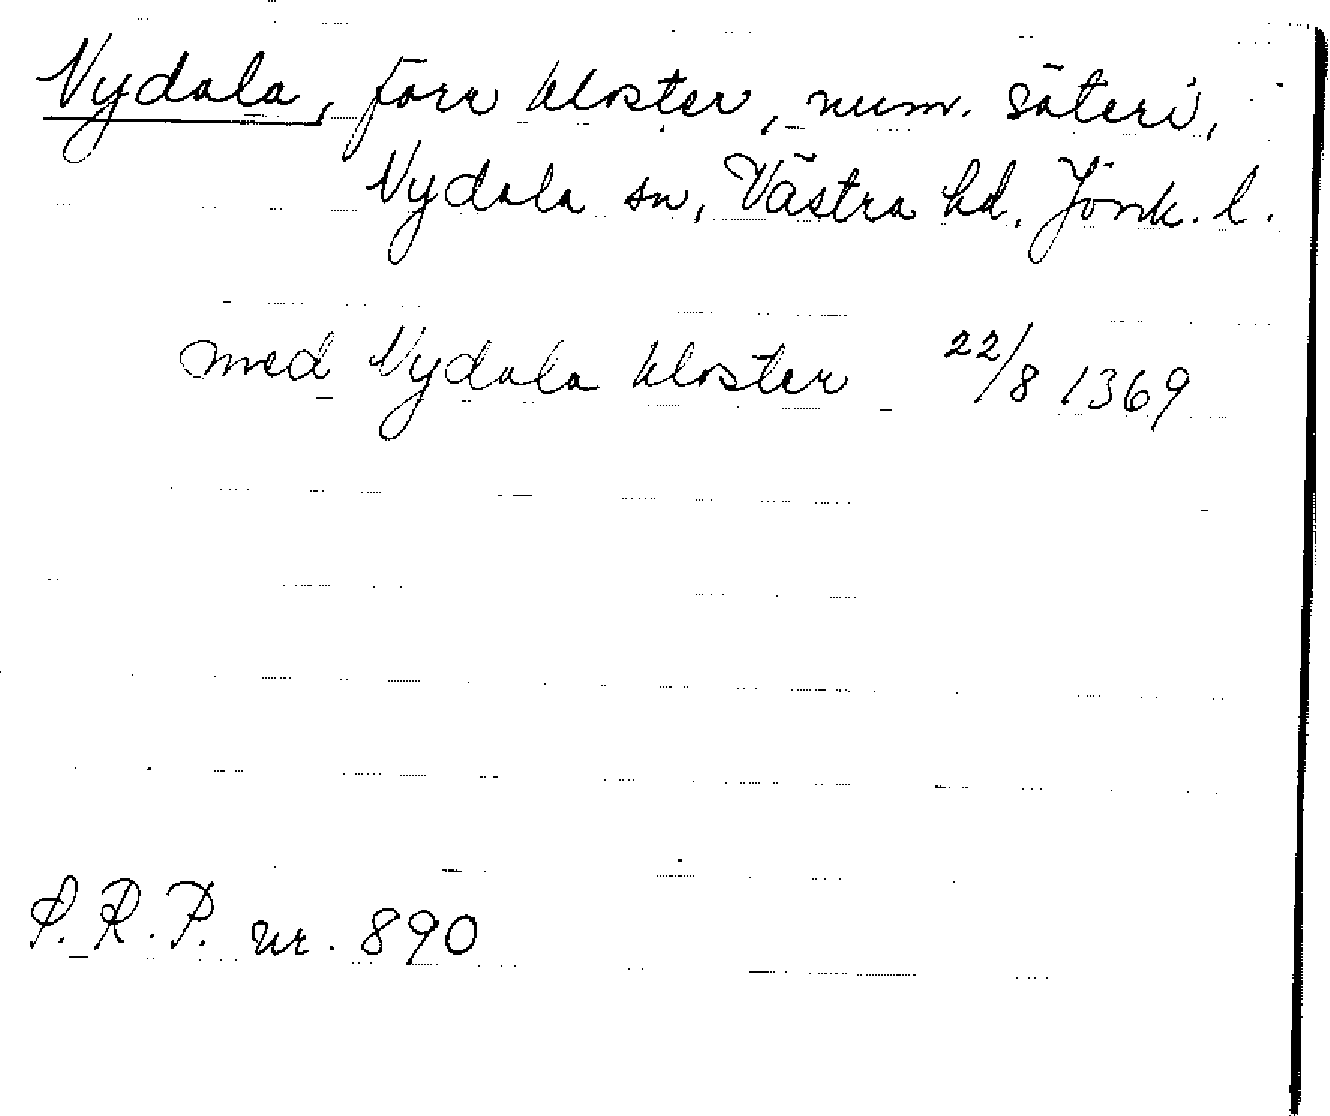 Nydala, förr kloster, num. säteri,
Nydala sn, Västra hd. Jönk. l.
med Nydala kloster 22/8 1369
S.R.P. nr. 890